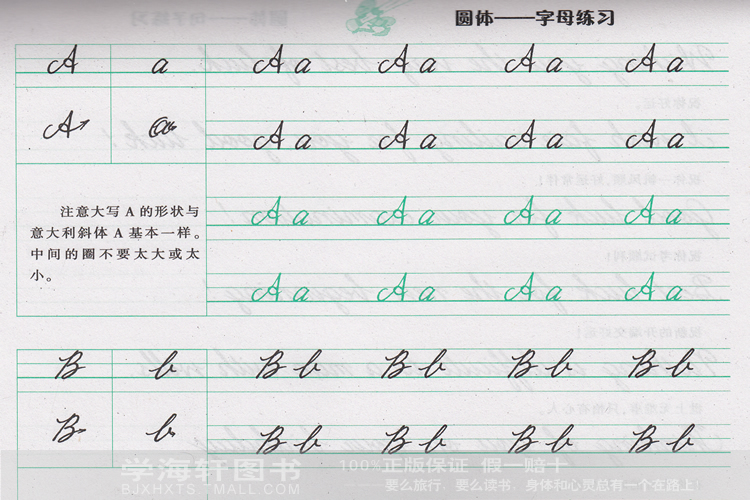 圆体——字母练习
A a A a A a A a A a
A a A a A a A a A a
注意大写 A 的形状与
意大利斜体 A 基本一样。
中间的圈不要太大或太
小。
A a A a A a A a
A a A a A a A a
B b B b B b B b B b
B b B b B b B b B b
学海轩图书
BJXHXTS.TMALL.COM
100%正版保证 假一赔十
——要么旅行，要么读书，身体和心灵总有一个在路上！